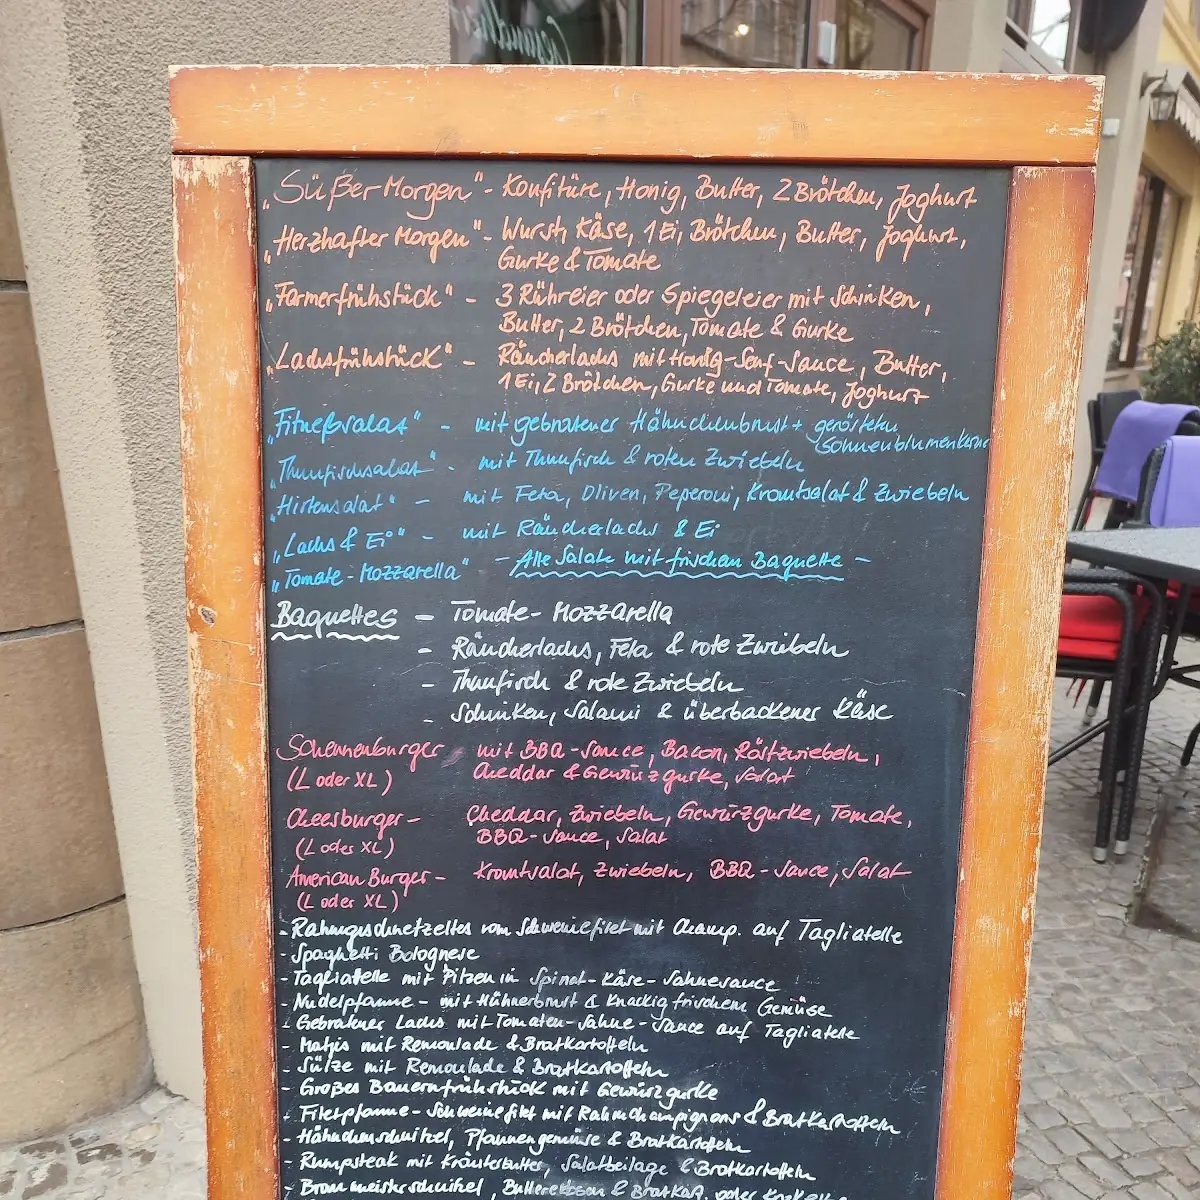 „Süßer Morgen" - Konfitüre, Honig, Butter, 2 Brötchen, Joghurt
„Herzhafter Morgen" - Wurst, Käse, 1 Ei, Brötchen, Butter, Joghurt,
Gurke & Tomate
„Farmerfrühstück" - 3 Rühreier oder Spiegeleier mit Schinken,
Butter, 2 Brötchen, Tomate & Gurke
„Lachsfrühstück" - Räucherlachs mit Honig-Senf-Sauce, Butter,
1 Ei, 2 Brötchen, Gurke und Tomate, Joghurt
„Fitneßsalat" - mit gebratener Hähnchenbrust + gerösteten
Sonnenblumenkerne
„Thunfischsalat" - mit Thunfisch & roten Zwiebeln
„Hirtensalat" - mit Feta, Oliven, Peperoni, Krautsalat & Zwiebeln
„Lachs & Ei" - mit Räucherlachs & Ei
„Tomate-Mozzarella" - Alle Salate mit frischem Baguette -
Baguettes - Tomate-Mozzarella
- Räucherlachs, Feta & rote Zwiebeln
- Thunfisch & rote Zwiebeln
- Schinken, Salami & überbackener Käse
mit BBQ-Sauce, Bacon, Röstzwiebeln,
(L oder XL) Cheddar & Gewürzgurke, Salat
Cheesburger - Cheddar, Zwiebeln, Gewürzgurke, Tomate,
(L oder XL) BBQ-Sauce, Salat
American Burger - Krautsalat, Zwiebeln, BBQ-Sauce, Salat
(L oder XL)
- Rahmgeschnetzeltes vom Schweinefilet mit Champ. auf Tagliatelle
- Spaghetti Bolognese
- Tagliatelle mit Pilzen in Spinat-Käse-Sahnesauce
- Nudelpfanne - mit Hühnerbrust & knackig frischem Gemüse
- Gebratener Lachs mit Tomaten-Sahne-Sauce auf Tagliatelle
- Matjs mit Remoulade & Bratkartoffeln
- Sülze mit Remoulade & Bratkartoffeln
- Großes Bauernfrühstück mit Gewürzgurke
- Filetpfanne - Schweinefilet mit Rahmchampignons & Bratkartoffeln
- Hähnchenschnitzel, Pfannengemüse & Bratkartoffeln
- Rumpsteak mit Kräuterbutter, Salatbeilage & Bratkartoffeln
- Braumeisterschnitzel, Buttererbsen & Bratkart. oder